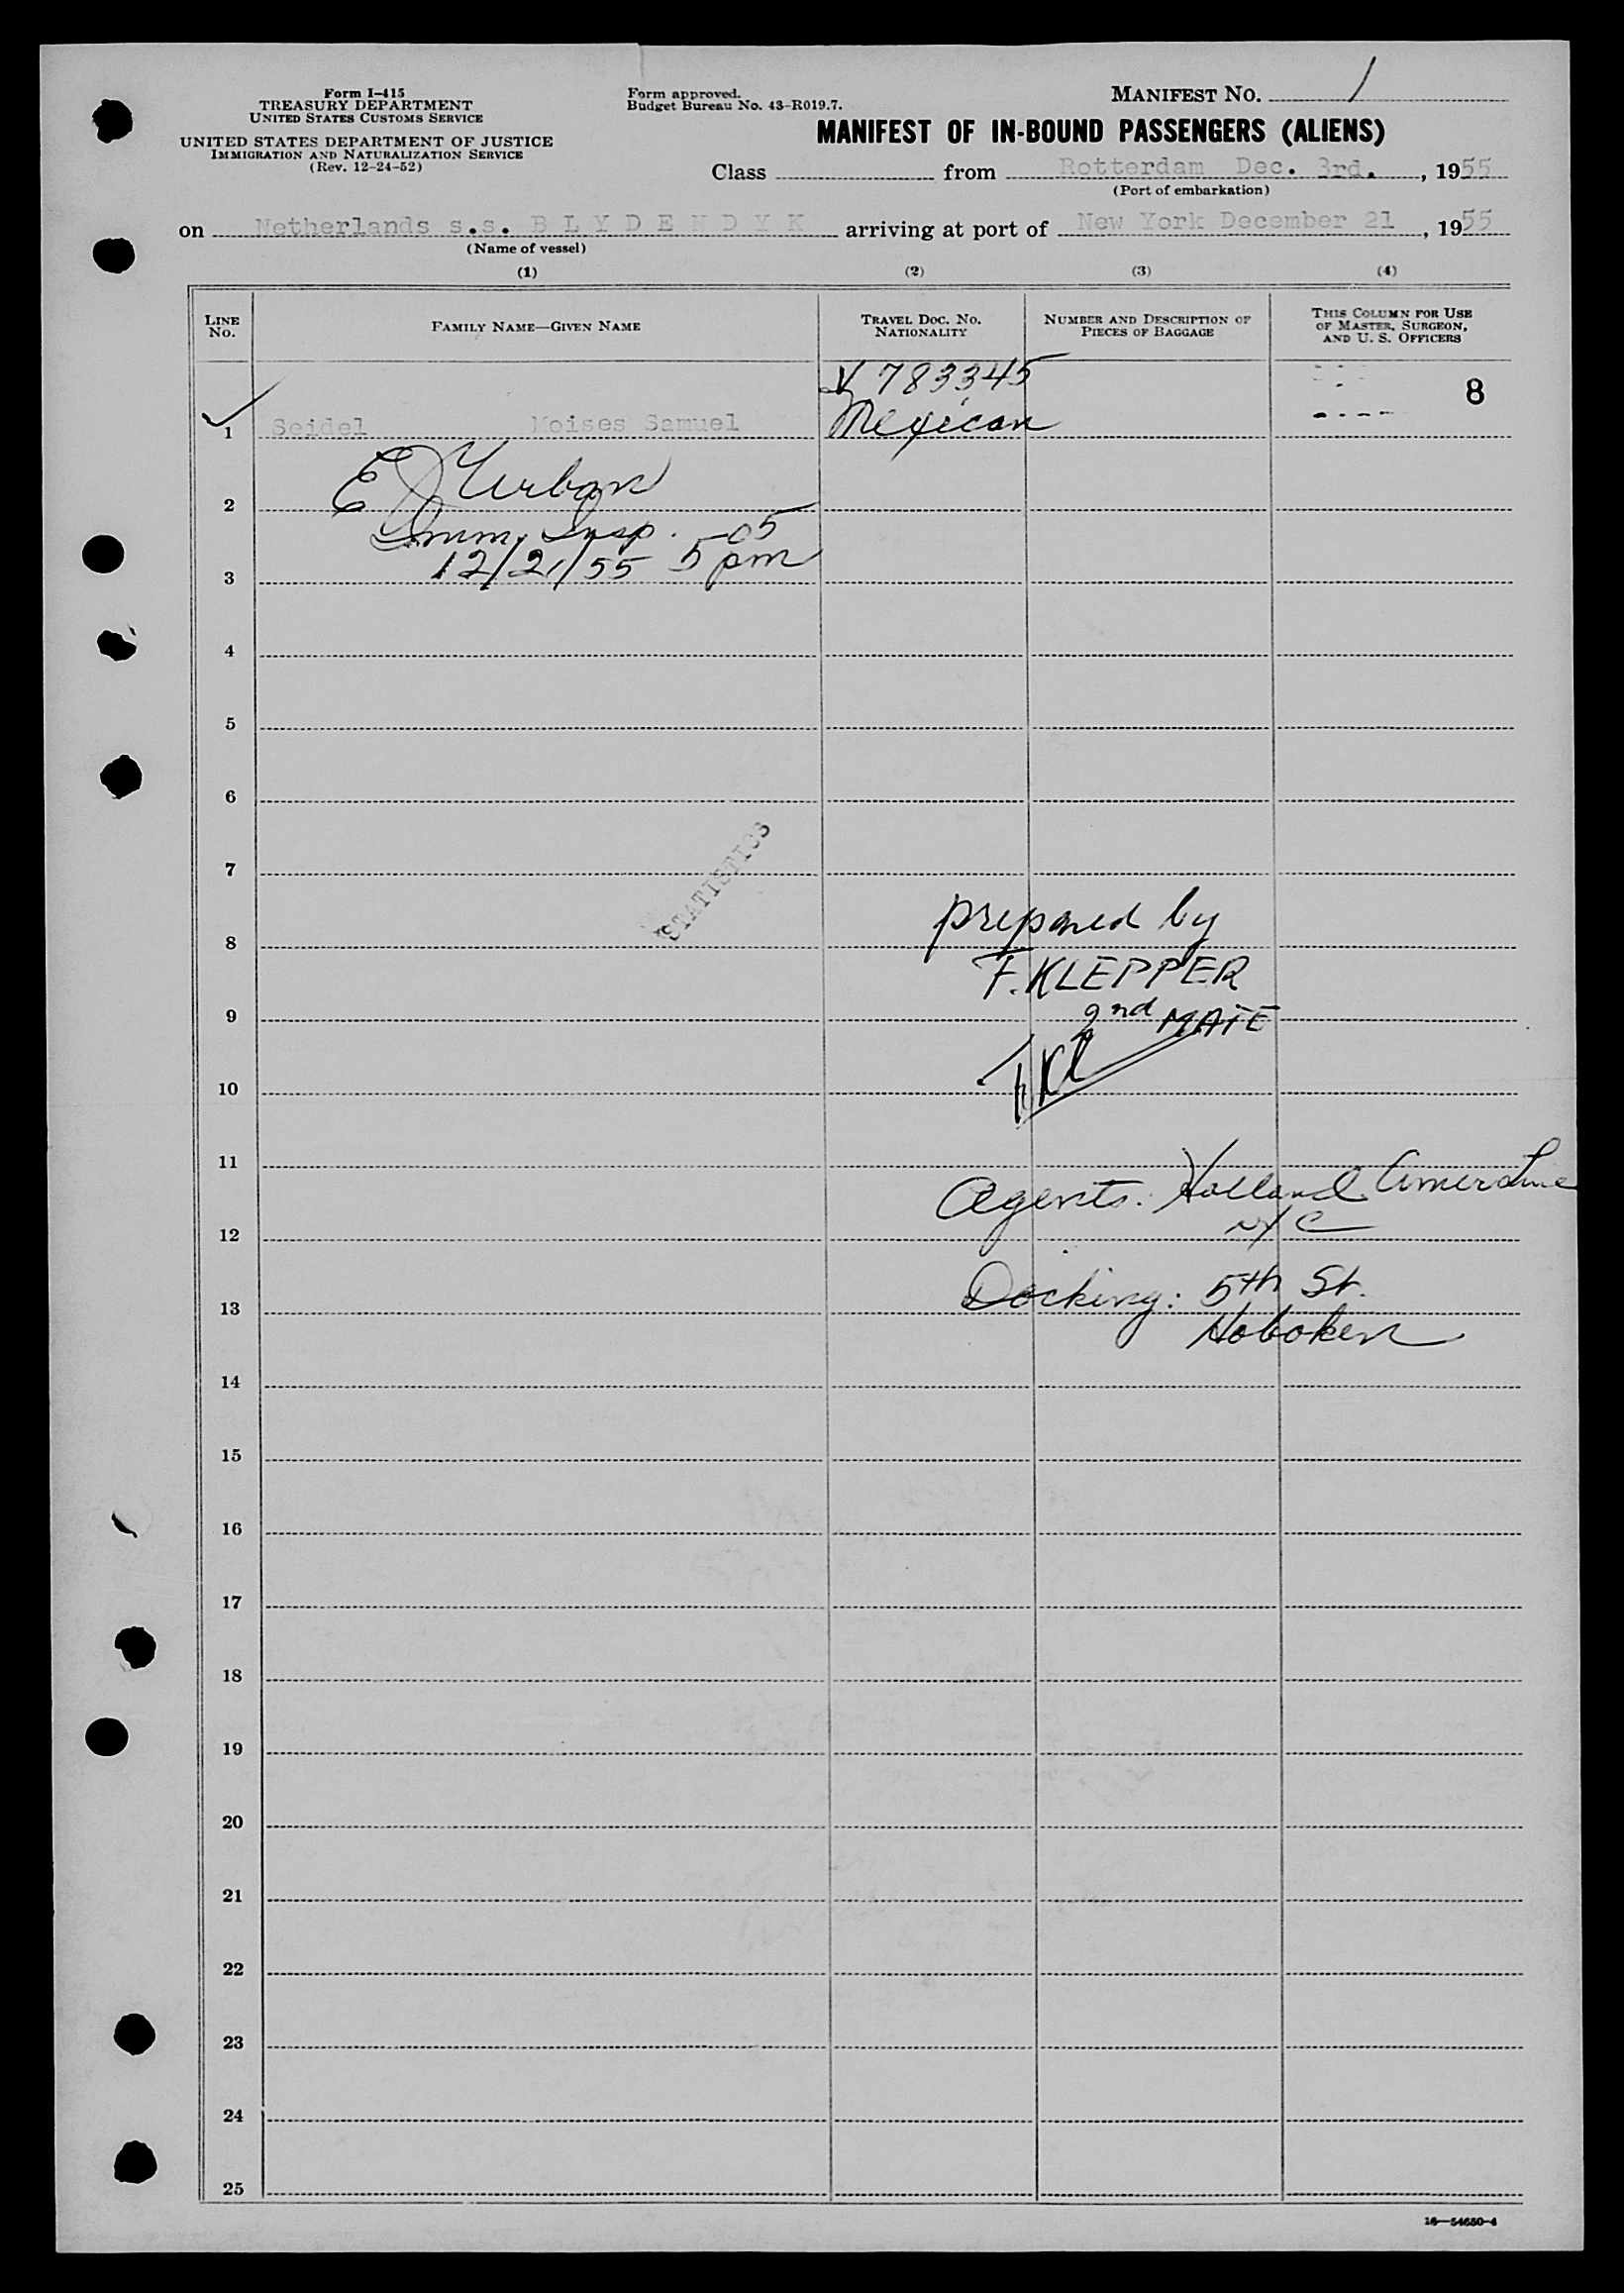 Form I-415
TREASURY DEPARTMENT
UNITED STATES CUSTOMS SERVICE
UNITED STATES DEPARTMENT OF JUSTICE
IMMIGRATION AND NATURALIZATION SERVICE
(Rev. 12-24-52)
Form approved.
Budget Bureau No. 43-R019.7.
MANIFEST NO. 1
MANIFEST OF IN-BOUND PASSENGERS (ALIENS)
Class from Rotterdam Dec. 3rd., 1955
(Port of embarkation)
on Netherlands s.s. BLYDENDYK arriving at port of New York December 21, 1955
(Name of vessel)
(1) (2) (3) (4)
LINE NO. FAMILY NAME—GIVEN NAME TRAVEL DOC. NO. NATIONALITY NUMBER AND DESCRIPTION OF PIECES OF BAGGAGE THIS COLUMN FOR USE OF MASTER, SURGEON, AND U. S. OFFICERS
V 783345 8
1 Seidel Moises Samuel Mexican
E J Urban
2
Imm. Insp. 05
12/21/55 5 pm
3
4
5
6
STATISTICS
7
prepared by
8
F. KLEPPER
2nd MATE
9
10
11
Agents: Holland Amer Line
NYC
12
Docking: 5th St.
13
Hoboken
14
15
16
17
18
19
20
21
22
23
24
25
16—54650-4